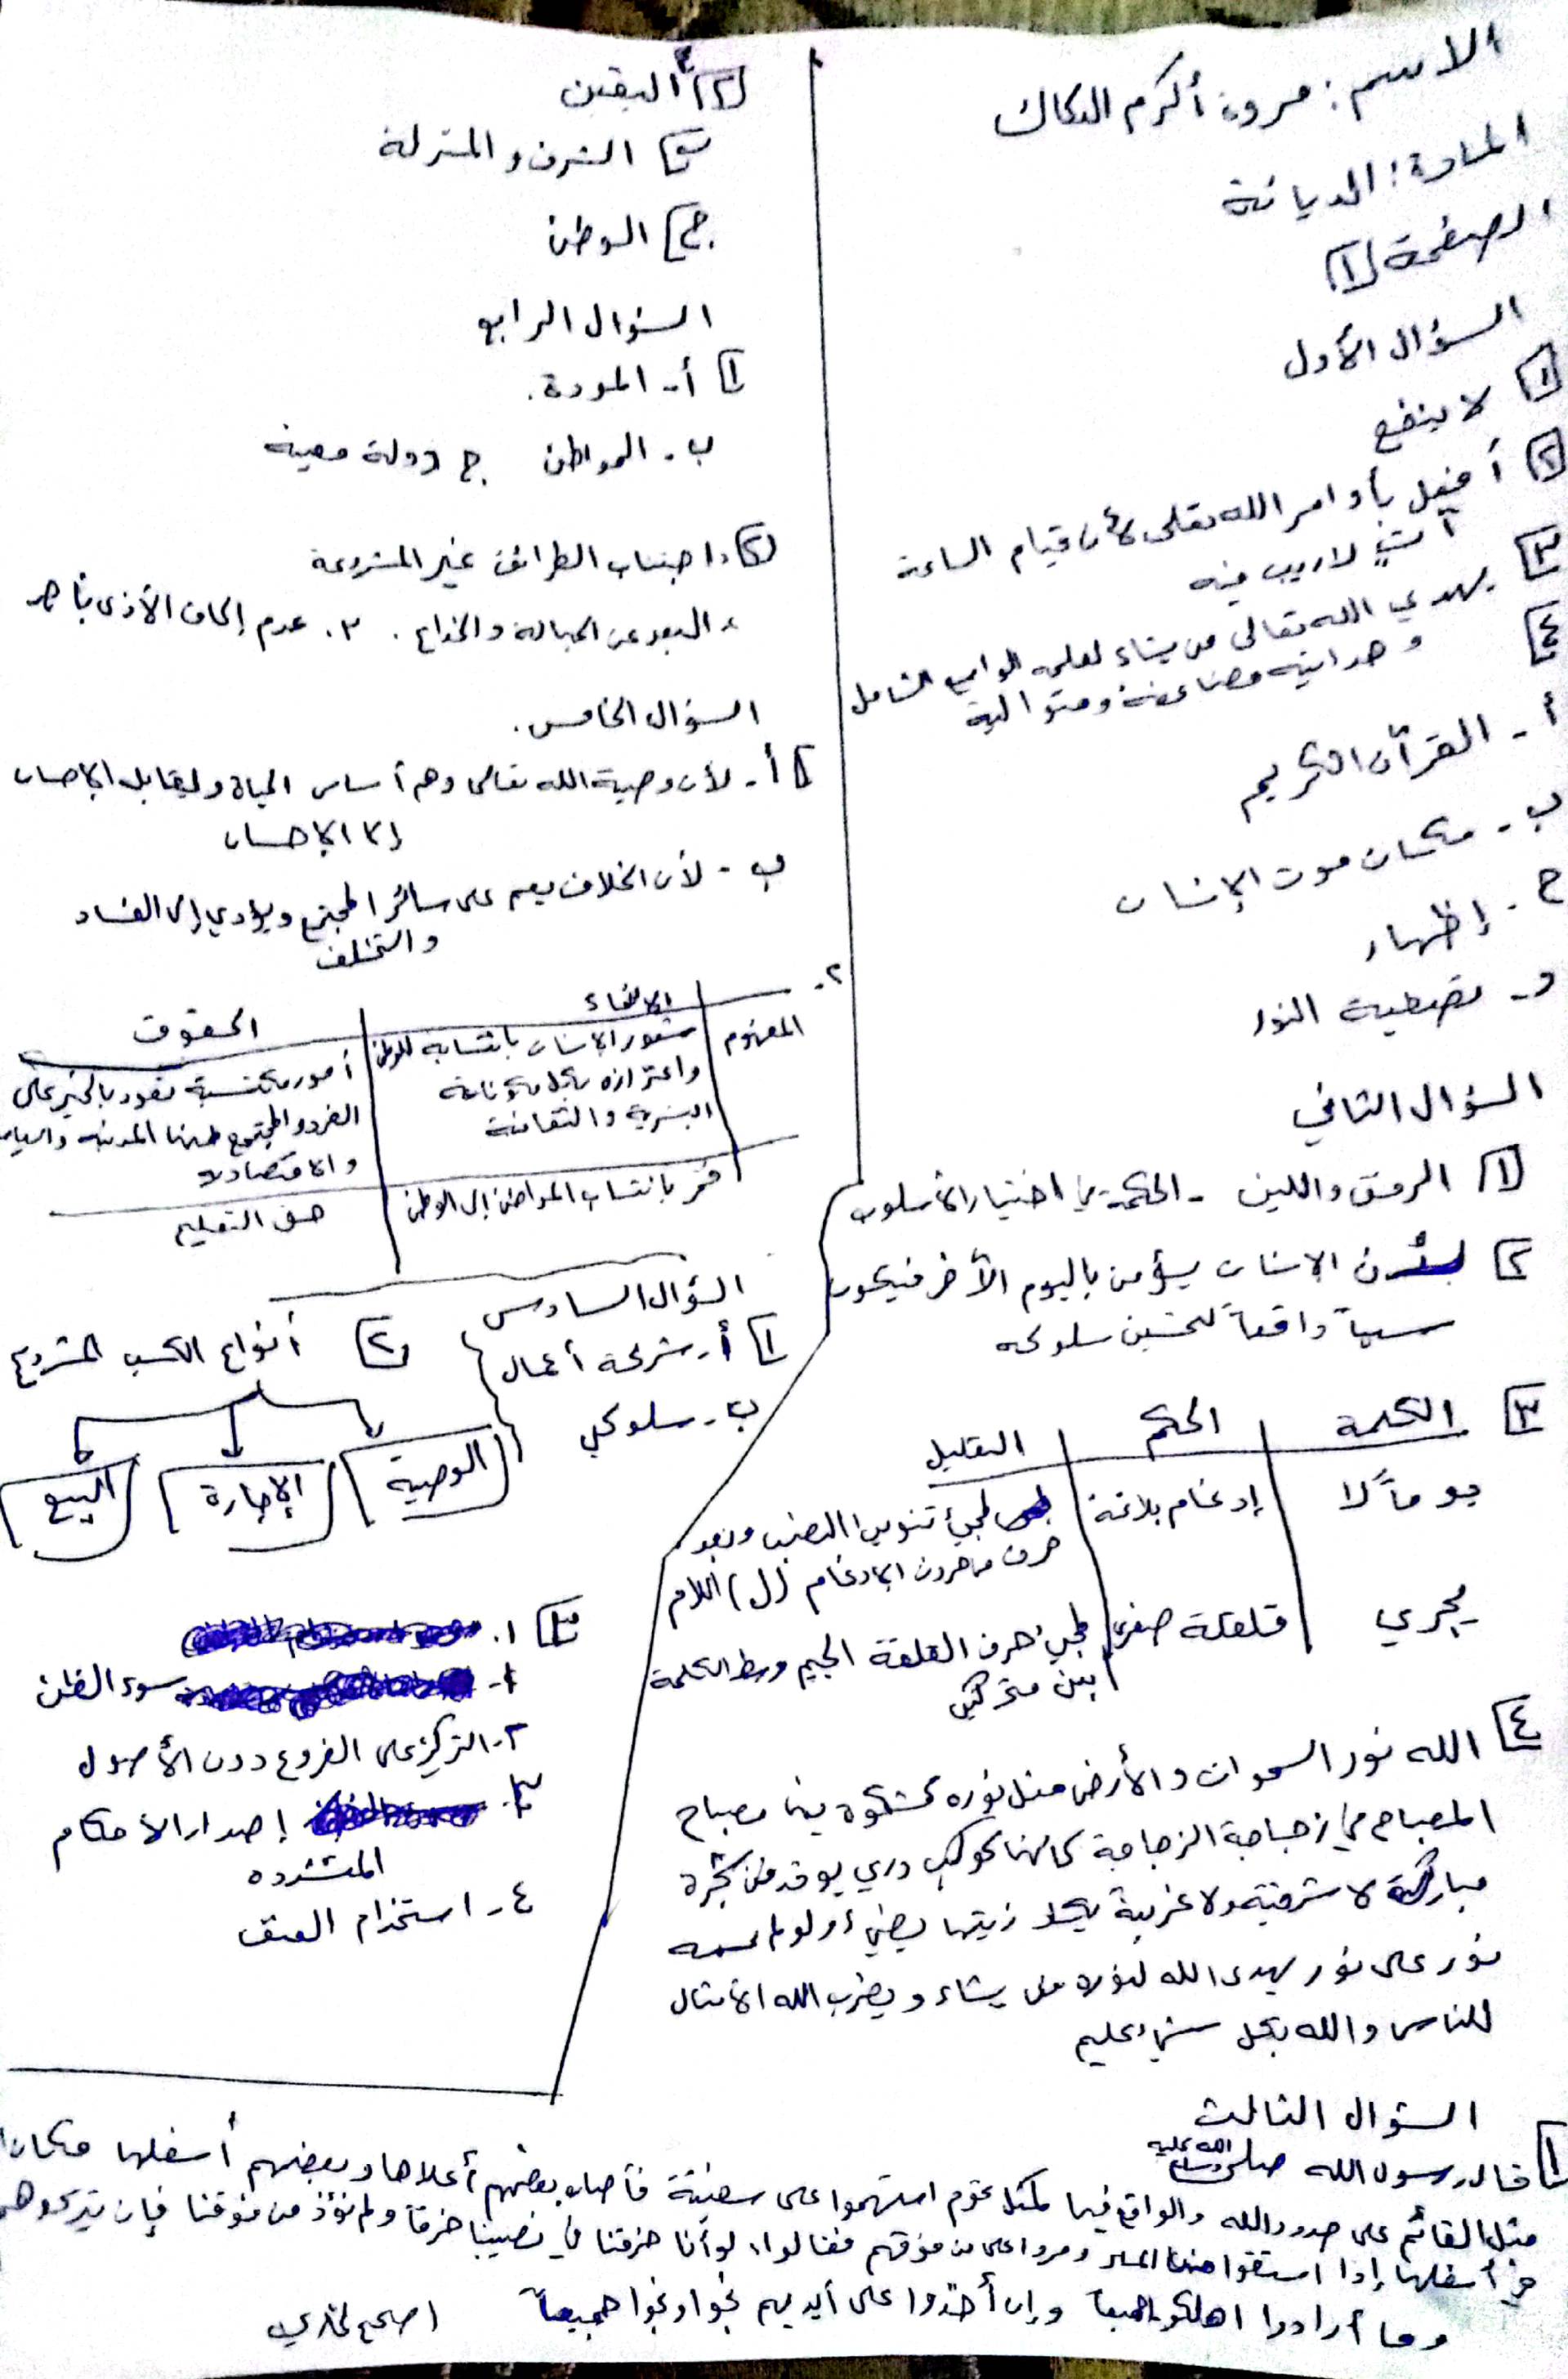 الاسم: مرون أكرم الدكاك
المادة: الديانة
الصفحة ١
السؤال الأول
١ لا ينفع
٢ أ فعل بأوامر الله تعلى لأن قيام الساعة
آتٍ لا ريب فيه
٣ يهدي الله تعالى من يشاء لعلمه الواسع الشامل
٤ وحدانيته مضاعفة ومتوالية
أ - القرآن الكريم
ب - مكان موت الإنسان
ج - إظهار
د - تغطية النور
السؤال الثاني
١ الرفق واللين - الحكمة في اختيار الأسلوب
٢ الإنسان يؤمن باليوم الآخر فيكون
سبباً دافعاً لتحسين سلوكه
٣ الكلمة الحكم التعليل
يوماً لا إدغام بلاغنة لمجيء تنوين النصب وبعد
حرف من حروف الإدغام (ل) اللام
يجري قلقلة صغرى لمجيء حرف القلقة الجيم وسط الكلمة
بين متحركين
٤ الله نور السموات والأرض مثل نوره كمشكوة فيها مصباح
المصباح في زجاجة الزجاجة كأنها كوكب دري يوقد من شجرة
مباركة لا شرقية ولا غربية يكاد زيتها يضيء أولو لم تمسسه
نور على نور يهدي الله لنوره من يشاء ويضرب الله الأمثال
للناس والله بكل شيء عليم
السؤال الثالث
١ قال رسول الله صلى الله عليه وسلم
مثل القائم على حدود الله والواقع فيها كمثل قوم استهموا على سفينة فأصاب بعضهم أعلاها وبعضهم أسفلها فكان
في أسفلها إذا استقوا من الماء ومروا على من فوقهم فقالوا: لو أنا خرقنا في نصيبنا خرقاً ولم نؤذ من فوقنا فإن يتركوهم
وما أرادوا اهلكو جميعا وإن أخذوا على أيديهم نجوا ونجوا جميعاً اصحيح البخاري
٢ أ اليقين
ب الشرف والمنزلة
ج الوطن
السؤال الرابع
١ أ - المودة.
ب - المواطن ج دولة معينة
٢ ١. اجتناب الطرائق غير المشروعة
٢. البعد عن الجهالة والخداع. ٣. عدم إلحاق الأذى بأحد
السؤال الخامس.
١ أ - لأن وصية الله تعالى وهم أساس الحياة وليقابل الإحسان
إلا الإحسان
ب - لأن الخلاف يعم على سائر المجتمع ويؤدي إلى الفساد
والتخلف
٢ - الانتماء الحقوق
المفهوم شعور الإنسان بانتسابه للوطن أمور مكتسبة تعود بالخير على
واعتزازه بكل مكوناته الفرد والمجتمع منها المدنية والسياسية
البشرية والثقافية والاقتصادية
فخر بانتساب المواطن إلى الوطن حق التعليم
السؤال السادس
١ أ - شركة أعمال
ب - سلوكي
٢ أنواع الكسب المشروع
الوصية الإجارة البيع
٣ ١.
١ - سوء الظن
٢ - التركيز على الفروع دون الأصول
٣ - إصدار الأحكام
المتشدده
٤ - استخدام العنف